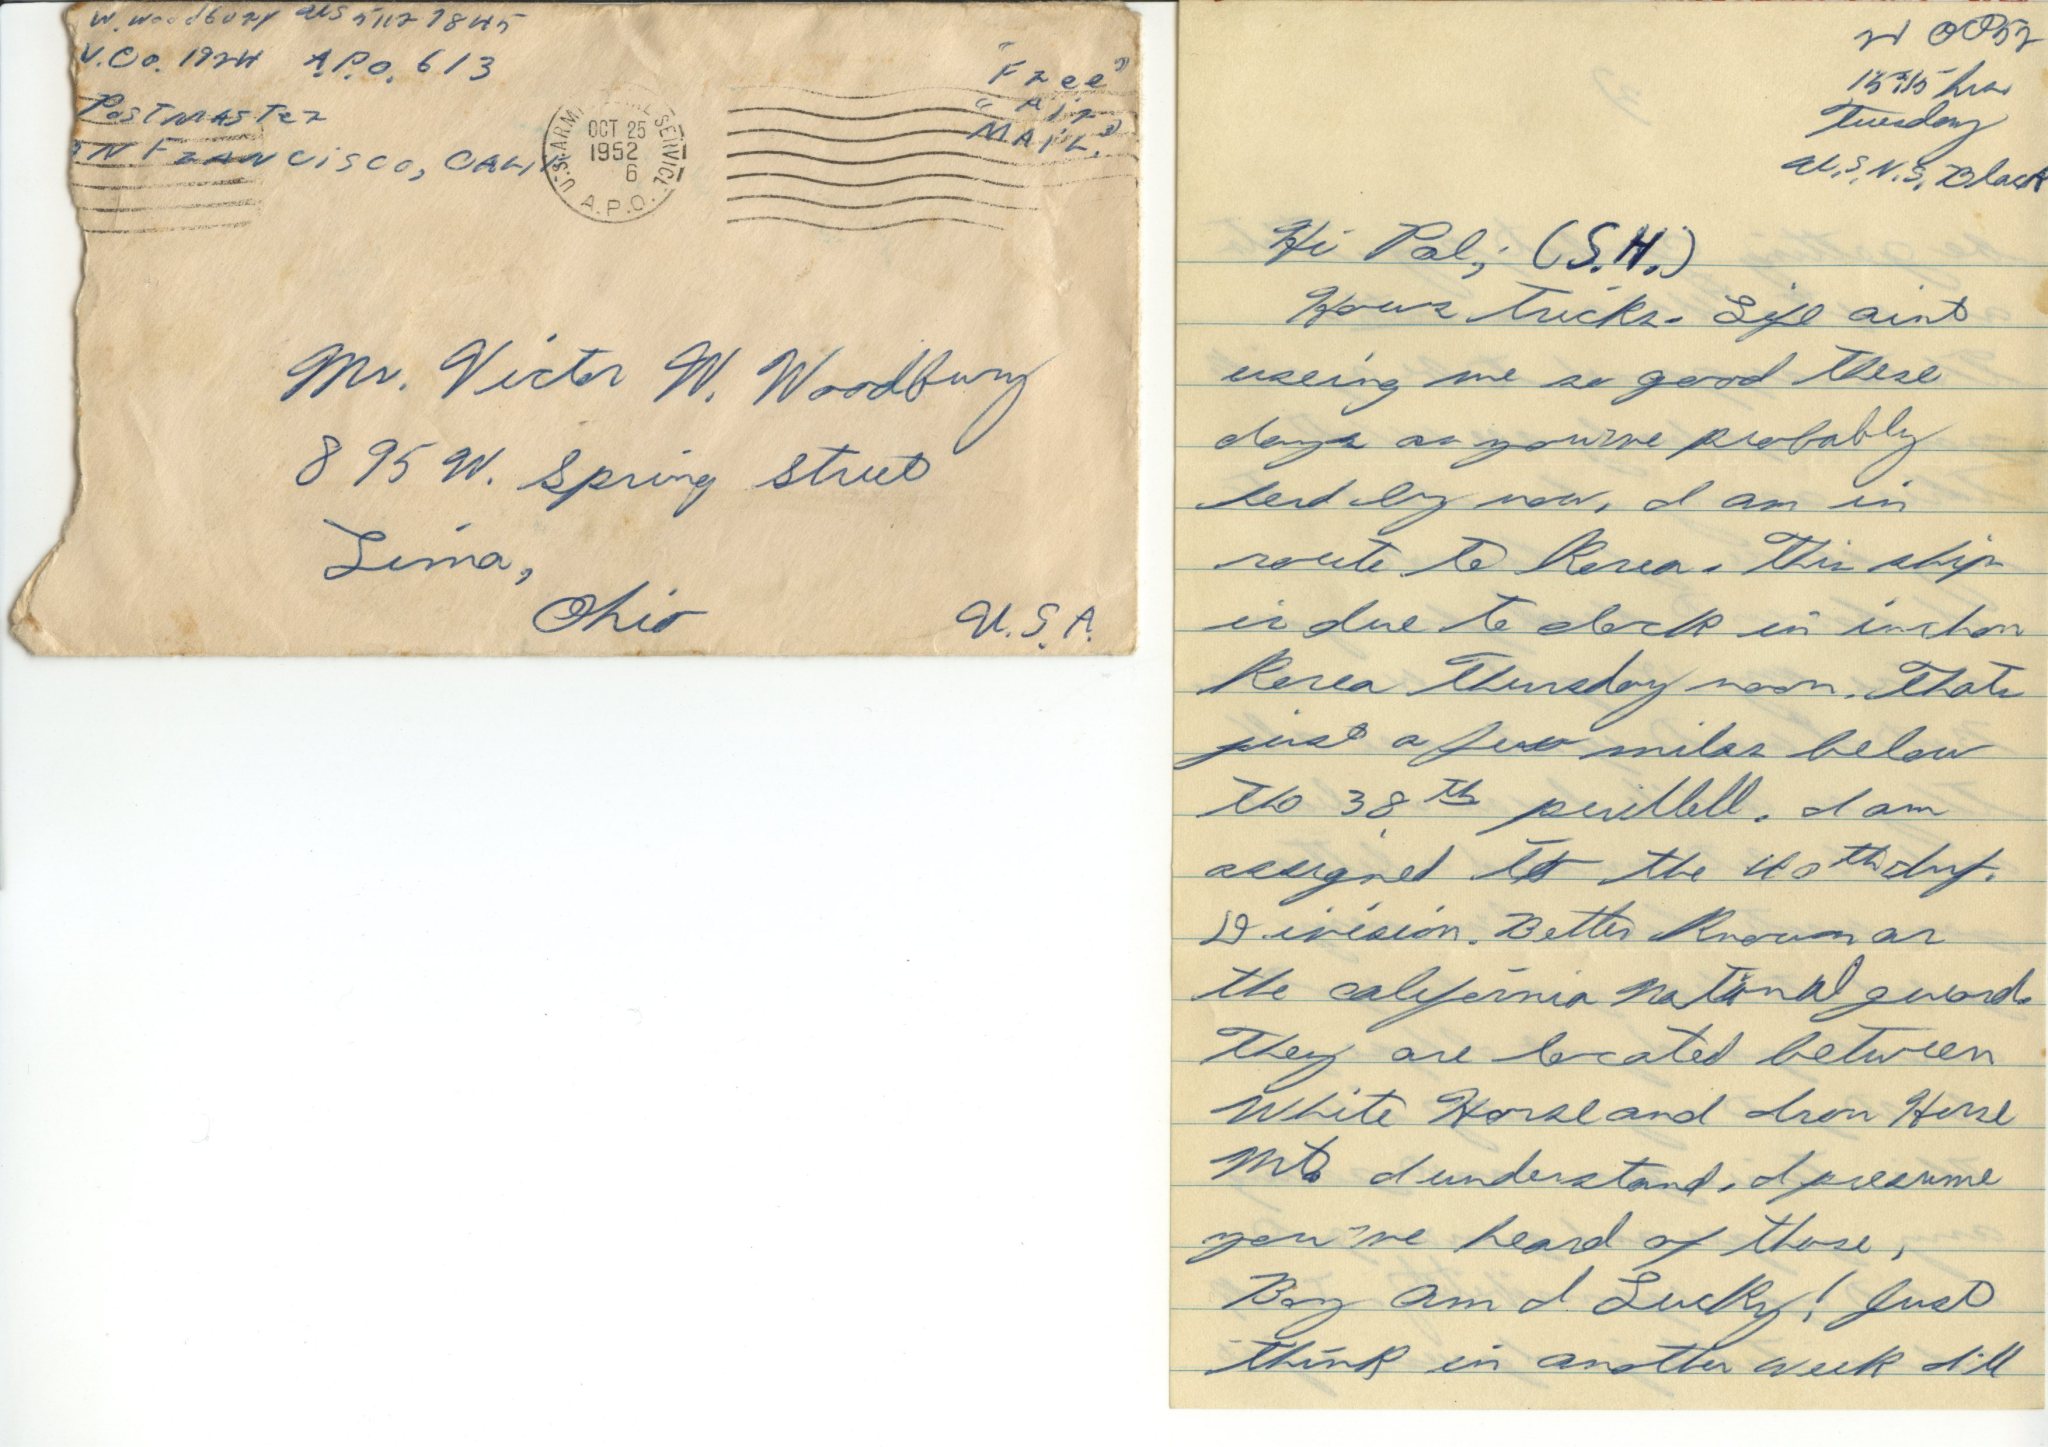 W. Woodbury US 5112 7845
V. Co. 1924 A.P.O. 613
Postmaster
N FRANCISCO, CALIF
"Free"
"Air
Mail"
U.S. ARMY SERVICE
OCT 25
1952
6
A.P.O.
Mr. Victor W. Woodbury
895 W. Spring Street
Lima,
Ohio U.S.A.
21 Oct 52
1515 hrs
Tuesday
U.S.N.S. Black
Hi Pal,; (S.H.)
Hows tricks. Life aint
useing me so good these
days as you've probably
herd by now. I am in
route to Korea. This ship
is due to dock in inchon
Korea Thursday noon. Thats
just a few miles below
the 38th perillell. I am
assigned to the 40th Inf.
Division. Better Known as
the california National guard.
They are located between
White Horse and Iron Horse
Mts I understand. I presume
you've heard of those.
Boy am I Lucky! Just
think in another week I'll